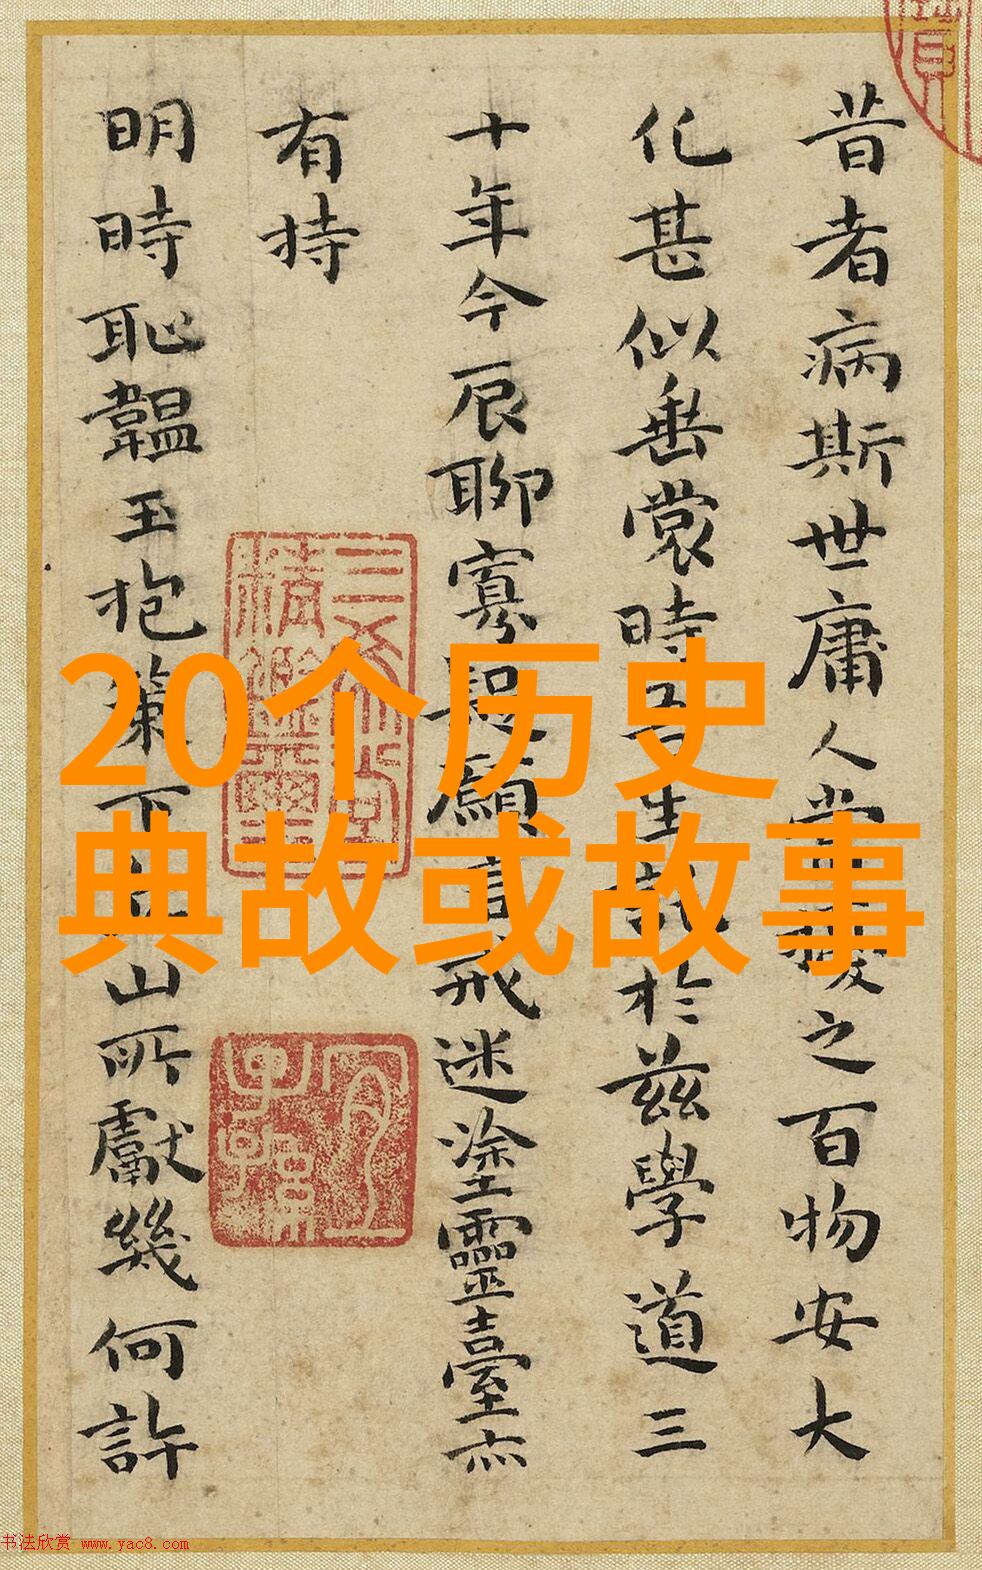 昔者病斯世庸人常擾之百物安大
化甚似垂裳時吾生託於茲學道三
十年今辰聊寡過願言戒迷塗靈臺亦
有持
明時恥韞玉抱策下山所獻幾何許
20个历史
典故或故事
书法欣赏 www.yac8.com